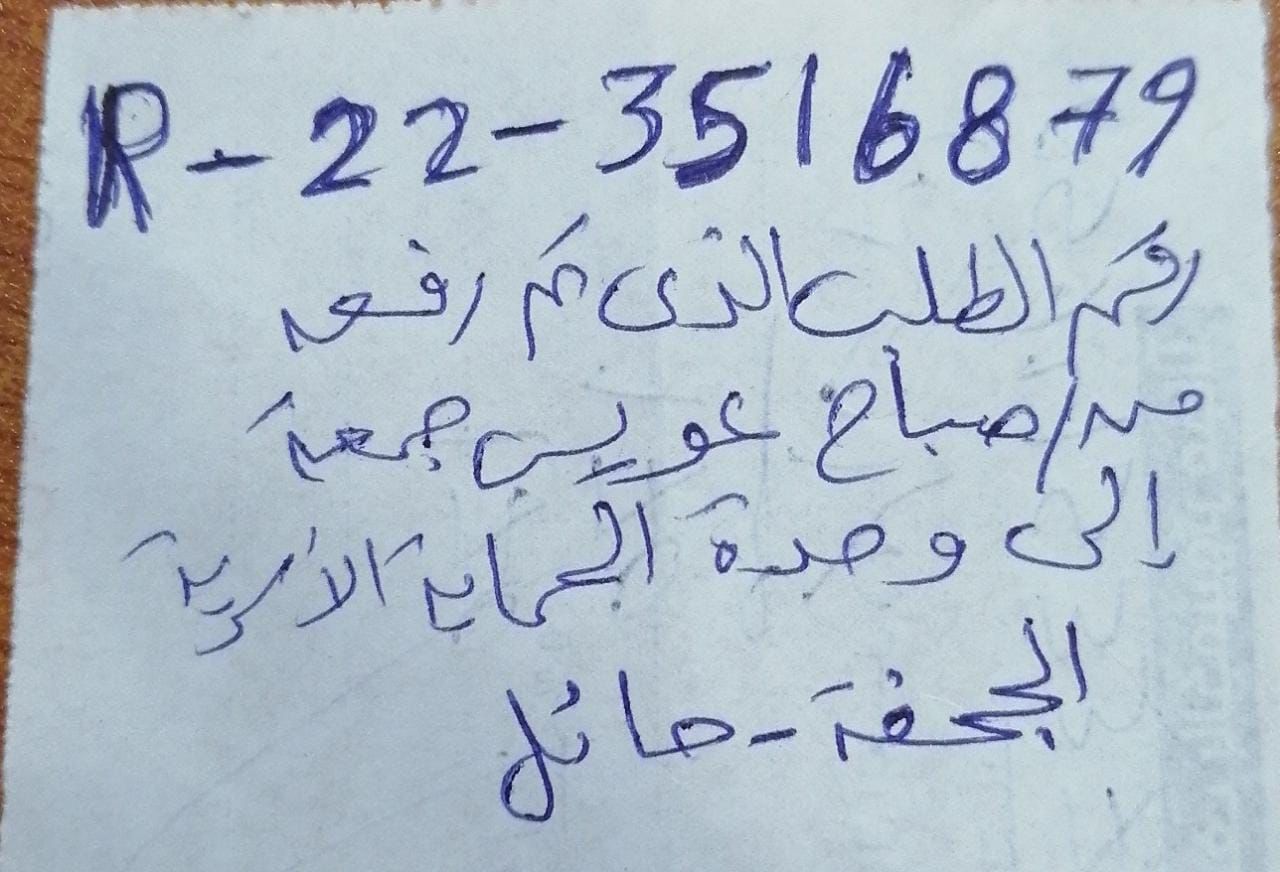 R-22-3516879
رقم الطلب الذى تم رفعه
من/صباح عويس جمعة
إلى وحدة الحماية الأسرية
الجحفة - حائل